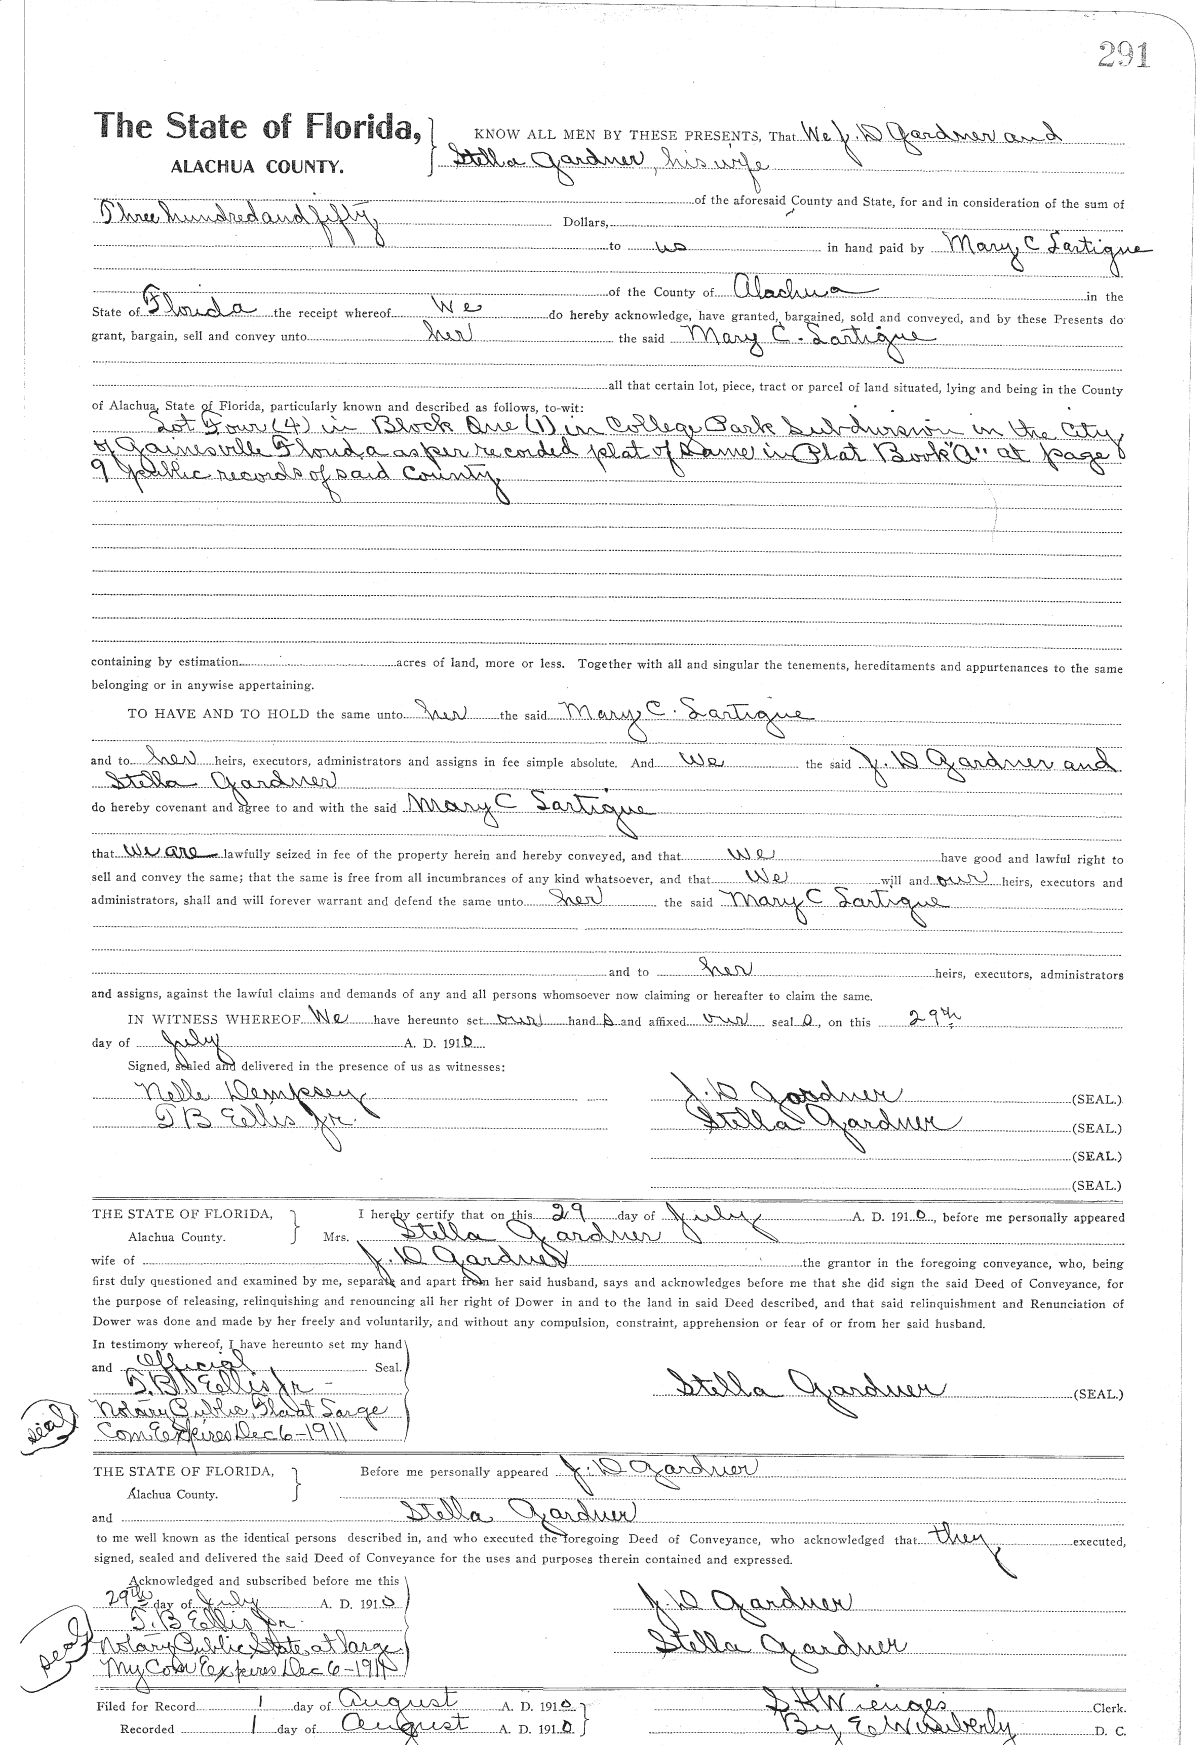 291
The State of Florida, KNOW ALL MEN BY THESE PRESENTS, That We J. D Gardner and
ALACHUA COUNTY. Stella Gardner, his wife
of the aforesaid County and State, for and in consideration of the sum of
Three hundred and fifty Dollars,
to us in hand paid by Mary C Lartigue
of the County of Alachua in the
State of Florida the receipt whereof We do hereby acknowledge, have granted, bargained, sold and conveyed, and by these Presents do
grant, bargain, sell and convey unto her the said Mary C. Lartigue
all that certain lot, piece, tract or parcel of land situated, lying and being in the County
of Alachua, State of Florida, particularly known and described as follows, to-wit:
Lot Four (4) in Block One (1) in College Park Subdivision in the City
of Gainesville Florida as per recorded plat of same in Plat Book "A" at page
9 public records of said County
containing by estimation acres of land, more or less. Together with all and singular the tenements, hereditaments and appurtenances to the same
belonging or in anywise appertaining.
TO HAVE AND TO HOLD the same unto her the said Mary C. Lartigue
and to her heirs, executors, administrators and assigns in fee simple absolute. And We the said J. D Gardner and
Stella Gardner
do hereby covenant and agree to and with the said Mary C Lartigue
that we are lawfully seized in fee of the property herein and hereby conveyed, and that we have good and lawful right to
sell and convey the same; that the same is free from all incumbrances of any kind whatsoever, and that We will and our heirs, executors and
administrators, shall and will forever warrant and defend the same unto her the said Mary C Lartigue
and to her heirs, executors, administrators
and assigns, against the lawful claims and demands of any and all persons whomsoever now claiming or hereafter to claim the same.
IN WITNESS WHEREOF We have hereunto set our hand s and affixed our seal s, on this 29th
day of July A. D. 1910
Signed, sealed and delivered in the presence of us as witnesses:
Nelle Dempsey J. D Gardner (SEAL.)
T B Ellis Jr. Stella Gardner (SEAL.)
(SEAL.)
(SEAL.)
THE STATE OF FLORIDA, I hereby certify that on this 29 day of July A. D. 1910, before me personally appeared
Alachua County. Mrs. Stella Gardner
wife of J. D Gardner the grantor in the foregoing conveyance, who, being
first duly questioned and examined by me, separate and apart from her said husband, says and acknowledges before me that she did sign the said Deed of Conveyance, for
the purpose of releasing, relinquishing and renouncing all her right of Dower in and to the land in said Deed described, and that said relinquishment and Renunciation of
Dower was done and made by her freely and voluntarily, and without any compulsion, constraint, apprehension or fear of or from her said husband.
In testimony whereof, I have hereunto set my hand
and Official Seal.
T. B. Ellis Jr Stella Gardner (SEAL.)
seal Notary Public, Fla at Large
Com Expires Dec 6-1911
THE STATE OF FLORIDA, Before me personally appeared J. D Gardner
Alachua County.
and Stella Gardner
to me well known as the identical persons described in, and who executed the foregoing Deed of Conveyance, who acknowledged that they executed,
signed, sealed and delivered the said Deed of Conveyance for the uses and purposes therein contained and expressed.
Acknowledged and subscribed before me this
29th day of July A. D. 1910 J. D Gardner
T. B Ellis Jr.
seal Notary Public State at large Stella Gardner
My Com Expires Dec 6-1911
Filed for Record 1 day of August A. D. 1910 S H Wienges Clerk.
Recorded 1 day of August A. D. 1910 By E Wimberly D. C.